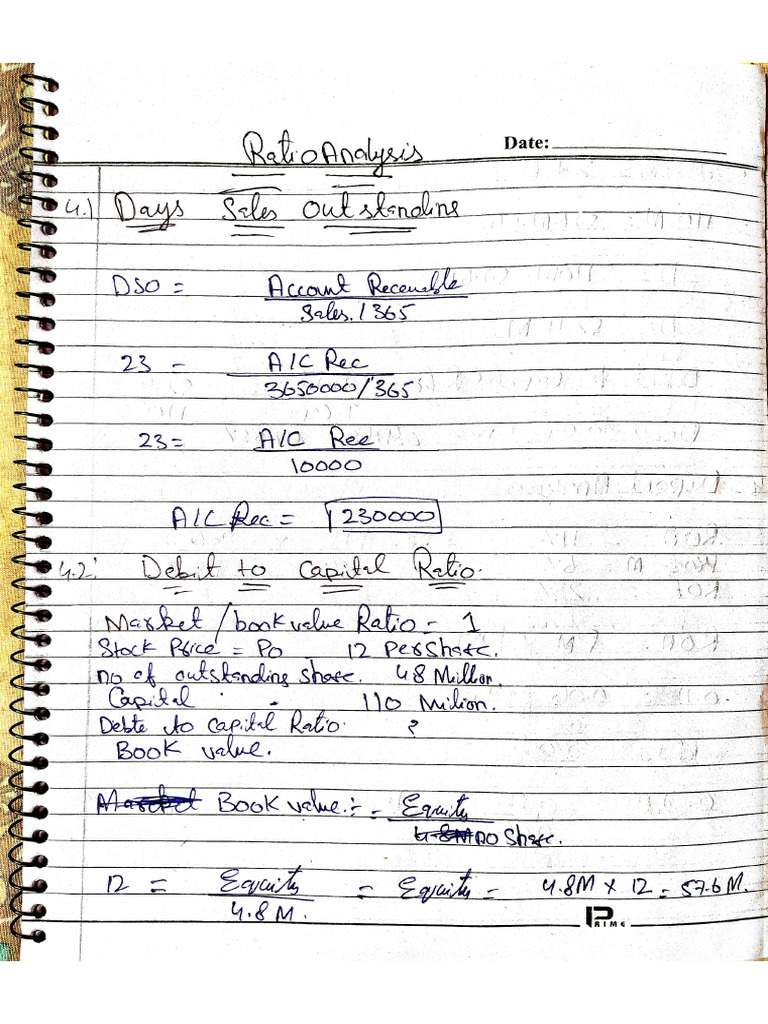 Date:
Ratio Analysis
4.1) Days Sales Outstanding
DSO = Account Receivable
Sales / 365
23 = A/C Rec
3650000/365
23 = A/C Rec
10000
A/C Rec = 230000
4.2: Debit to Capital Ratio.
Market / book value Ratio = 1
Stock Price = Po 12 Per Share.
no of outstanding share. 48 Million.
Capital = 110 Milion.
Debte to capital Ratio. ?
Book value.
Market Book value := Equity
4.8M no Share.
12 = Equity = Equity = 4.8M x 12 = 57.6 M.
4.8 M.
PRIME